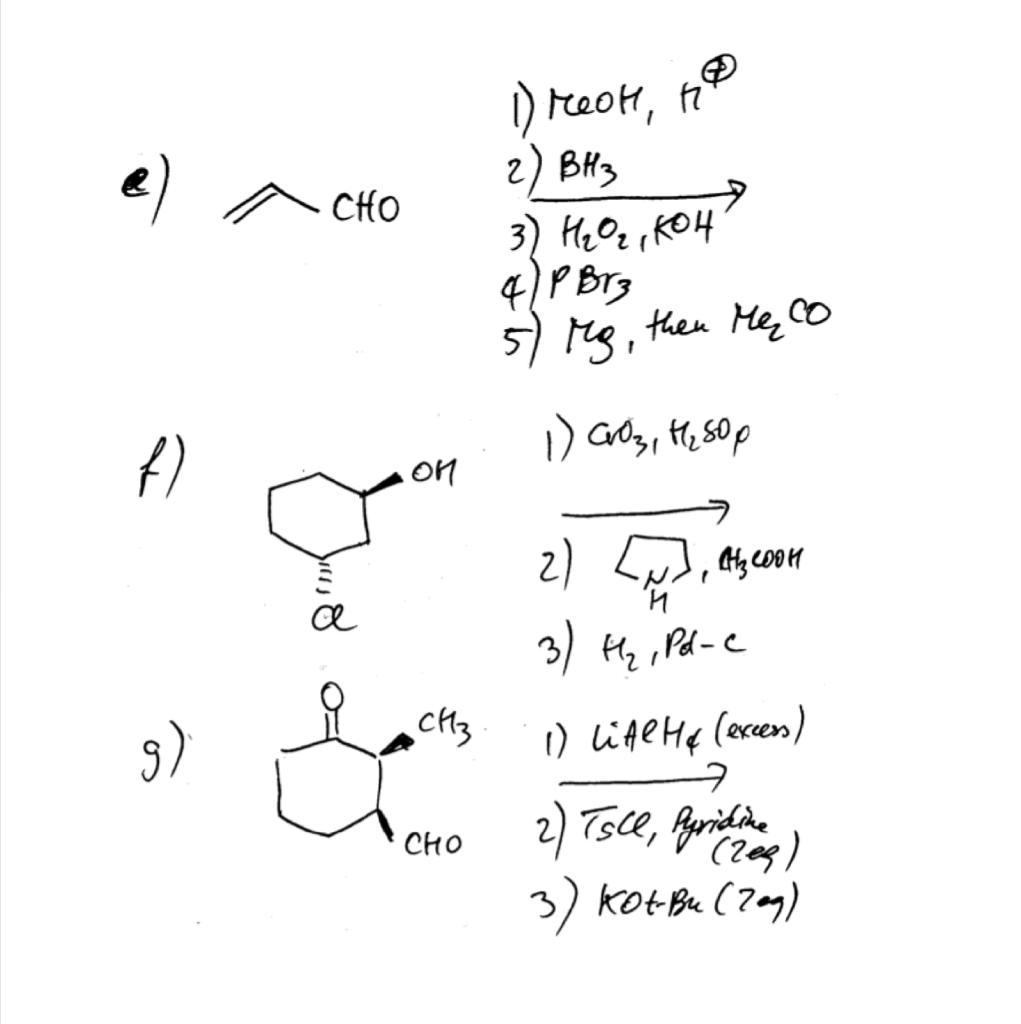 1) MeOH, H⊕
2) BH₃
e) CHO
3) H₂O₂, KOH
4) PBr₃
5) Mg, then Me₂CO
f) OH
1) CrO₃, H₂SO₄
2) N H , CH₃COOH
Cl
3) H₂, Pd-C
O
g) CH₃
1) LiAlH₄ (excess)
CHO
2) TsCl, Pyridine
(2eq)
3) KOt-Bu (2eq)